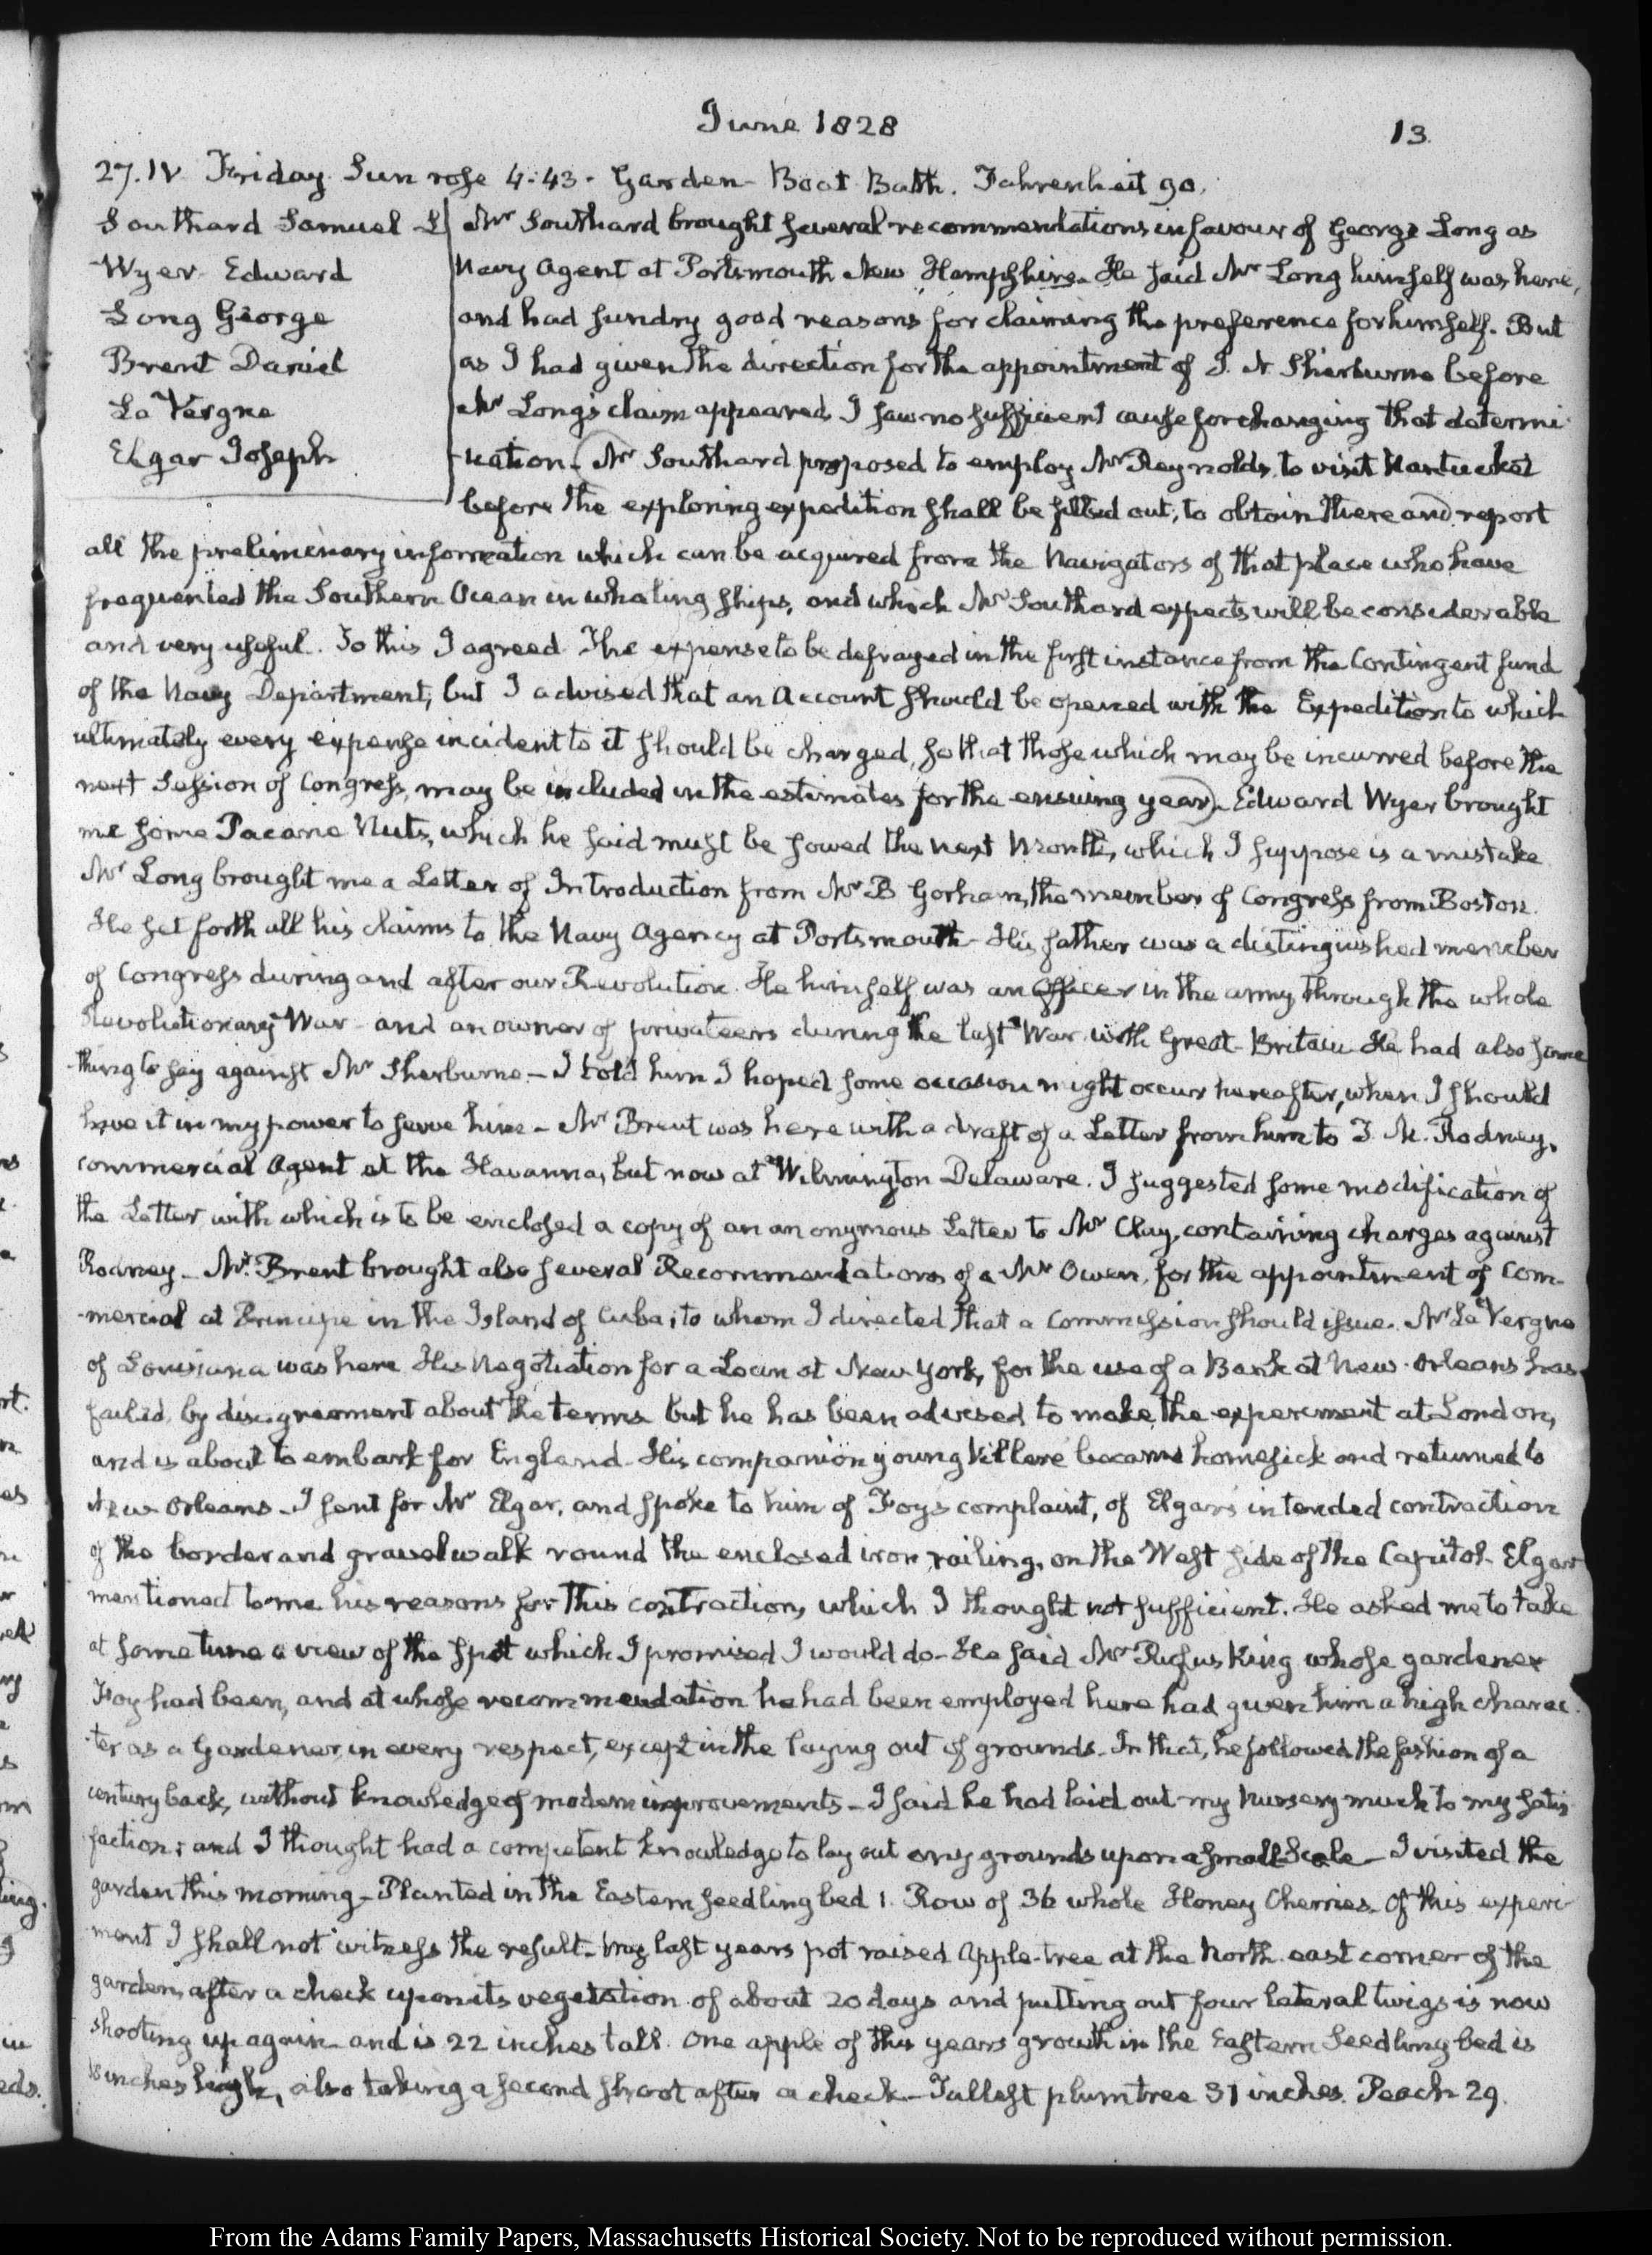 June 1828
13.
27. IV. Friday. Sun rose 4:43. Garden - Boat Bath. Fahrenheit 90.
Southard Samuel L
Wyer Edward
Long George
Brent Daniel
La Vergne
Elgar Joseph
Mr Southard brought several recommendations in favour of George Long as
Navy Agent at Portsmouth New Hampshire. He said Mr Long himself was here,
and had sundry good reasons for claiming the preference for himself. But
as I had given the direction for the appointment of J. N. Sherburne before
Mr Long's claim appeared I saw no sufficient cause for changing that determi-
-nation - Mr Southard proposed to employ Mr Reynolds, to visit Nantucket
before the exploring expedition shall be fitted out, to obtain there and report
all the preliminary information which can be acquired from the Navigators of that place who have
frequented the Southern Ocean in whaling ships, and which Mr Southard expects will be considerable
and very useful. To this I agreed. The expense to be defrayed in the first instance from the Contingent fund
of the Navy Department, but I advised that an Account should be opened with the Expedition to which
ultimately every expense incident to it should be charged, so that those which may be incurred before the
next Session of Congress, may be included in the estimates for the ensuing year). Edward Wyer brought
me some Pacane Nuts, which he said must be sowed the next Month, which I suppose is a mistake
Mr Long brought me a Letter of Introduction from Mr B Gorham, the member of Congress from Boston.
He set forth all his claims to the Navy Agency at Portsmouth - His father was a distinguished member
of Congress during and after our Revolution. He himself was an Officer in the army through the whole
Revolutionary War - and an owner of privateers during the last War with Great-Britain. He had also some
-thing to say against Mr Sherburne. - I told him I hoped some occasion might occur hereafter, when I should
have it in my power to serve him - Mr Brent was here with a draft of a Letter from him to T. M. Rodney,
commercial Agent at the Havanna, but now at Wilmington Delaware. I suggested some modification of
the Letter with which is to be enclosed a copy of an anonymous Letter to Mr Clay, containing charges against
Rodney - Mr Brent brought also several Recommendations of a Mr Owen, for the appointment of Com-
-mercial at Principe in the Island of Cuba; to whom I directed that a Commission should issue. Mr La Vergne
of Louisiana was here His Negotiation for a Loan at New York, for the use of a Bank at New-Orleans has
failed, by disagreement about the terms but he has been advised to make the experiment at London,
and is about to embark for England - His companion young Villere became homesick and returned to
New Orleans - I sent for Mr Elgar, and spoke to him of Foy's complaint, of Elgar's intended contraction
of the border and gravel walk round the enclosed iron railing, on the West side of the Capitol - Elgar
mentioned to me his reasons for this contraction, which I thought not sufficient. He asked me to take
at some time a view of the spot which I promised I would do - He said Mr Rufus King whose gardener
Foy had been, and at whose recommendation he had been employed here had given him a high charac-
-ter as a Gardener, in every respect, except in the laying out of grounds - In that, he followed the fashion of a
century back, without knowledge of modern improvements - I said he had laid out my Nursery much to my satis-
faction; and I thought had a competent knowledge to lay out any grounds upon a small scale - I visited the
garden this morning - Planted in the Eastern seedling bed 1. Row of 36 whole Honey Cherries. Of this experi-
ment I shall not witness the result - My last years pot raised Apple-tree at the North east corner of the
garden, after a check upon its vegetation of about 20 days and putting out four lateral twigs is now
shooting up again and is 22 inches tall. One apple of this years growth in the Eastern Seedling bed is
inches high, also taking a second shoot after a check - Tallest plumtree 31 inches. Peach 29.
From the Adams Family Papers, Massachusetts Historical Society. Not to be reproduced without permission.